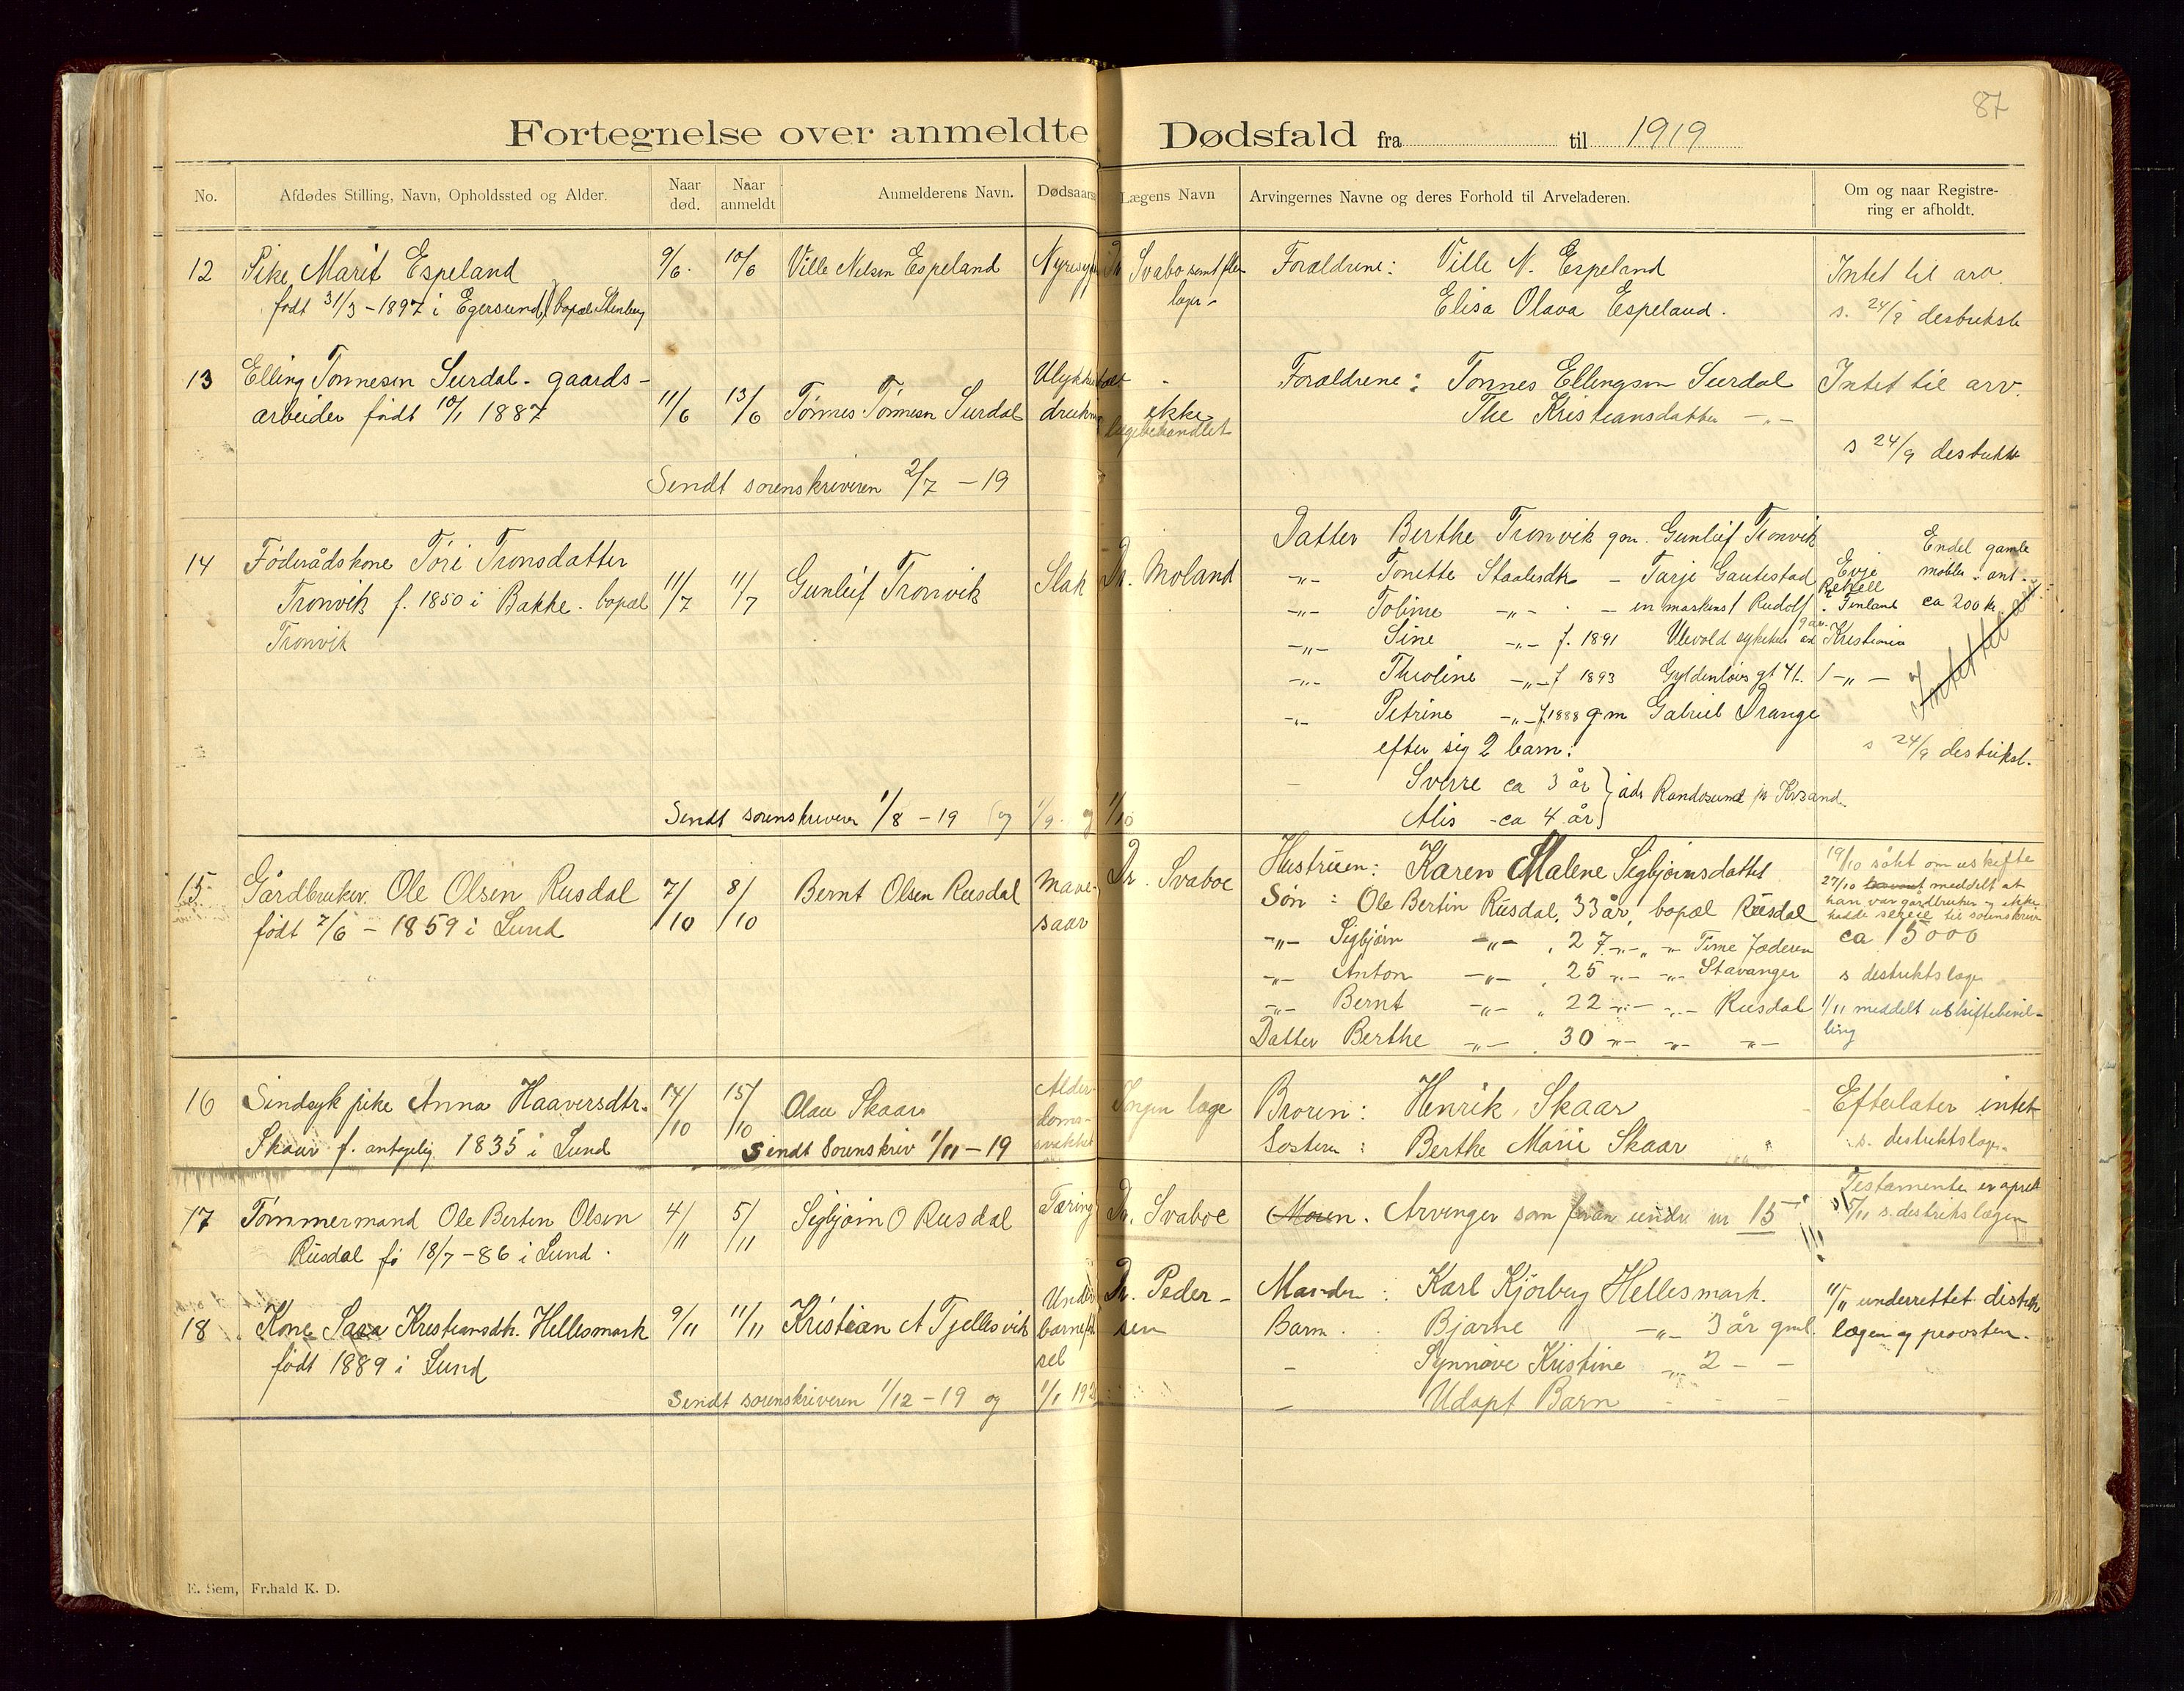 87
Fortegnelse over anmeldte Dødsfald fra til 1919
No. Afdødes Stilling, Navn, Opholdssted og Alder. Naar død. Naar anmeldt Anmelderens Navn. Dødsaars Lægens Navn Arvingernes Navne og deres Forhold til Arveladeren. Om og naar Registre-
ring er afholdt.
12 Pike Marit Espeland 9/6. 10/6 Ville Nelsen Espeland Nyresyg Dr Svaboe samt flere Forældrene: Ville N. Espeland Intet til arv.
født 31/3 - 1897 i Egersund, bopæl Stenberg læger Elisa Olava Espeland. s. 24/9
13 Elling Tønnesen Surdal - gaards-
arbeider født 10/1 1887 11/6 13/6 Tønnes Tønnesen Surdal Ulykkes drukn ikke
lægebehandlet Forældrene: Tønnes Ellingsen Surdal Intet til arv.
Kristiansdatter -"-
s 24/9
Sendt sorenskriveren 2/7 - 19
14 Føderådskone Tori Tronsdatter 11/7 11/7 Gunleif Tronvik Slag Dr. Moland Datter Berthe Tronvik gm. Gunleif Tronvik Endel gamle
Tronvik f. 1850 i Bakke. bopæl -"- Tonette Staalesdtr - Tarje Gautestad Evje møbler. ant.
Tronvik -"- Toline -"- - en maskinst Rudolf Finland ca 200 kr.
-"- Sine -"- f. 1891 Ulevold sykehus Kristiania
-"- Theoline -"- f 1893 Gyldenløvs gt 41. -"- Intet til arv
-"- Petrine -"- f. 1888 gm Gabriel Drange
efter sig 2 barn: s 24/9
Sverre ca 3 år } adr Randøsund pr Krsand.
Alis - ca 4 år
Sendt sorenskriveren 1/8 - 19 (og 1/9 og 1/10
15 Gårdbruker. Ole Olsen Rusdal 7/10 8/10 Bernt Olsen Rusdal Mave-
saar Dr. Svaboe Hustruen: Karen Malene Sigbjørnsdatter 19/10 søkt om uskifte
født 7/6 - 1859 i Lund Søn: Ole Bertin Rusdal, 33 år, bopæl Rusdal 27/10 meddelt at
han var gårdbruker og ikke
-"- Sigbjørn -"- , 27 -"- -"- Time Jæderen ca 15000
-"- Anton -"- , 25 -"- -"- Stavanger s distriktslæge
-"- Bernt -"- , 22 -"- -"- Rusdal 1/11 meddelt uskiftebevil-
ling
Datter Berthe -"- . 30 -"- -"- -"-
16 Sindsyk pike Anna Haaversdtr. 14/10 15/10 Olav Skaar Alder-
doms-
svakhet Ingen læge Broren: Henrik Skaar Efterlater intet
Skaar f. antagelig 1835 i Lund Søsteren: Berthe Marie Skaar s. distriktslæge
Sendt Sorenskriv 1/11 - 19
17 Tømmermand Ole Bertin Olsen 4/11 5/11 Sigbjørn O Rusdal Tæring Dr. Svaboe Moren. Arvinger som foran under nr 15 Testamente er opret
Rusdal fø 18/7 - 86 i Lund. 5/11 s. distriktslægen
18 Kone Sara Kristiansdtr. Hellesmark 9/11 11/11 Kristian A Tjellesvik Under
barnefød
sel Dr. Peder-
sen Manden: Karl Kjørberg Hellesmark. 11/11 underrettet distrikts
født 1889 i Lund Barn. Bjarne -"- 3 år gml. lægen og provsten.
- Synnøve Kristine -"- 2 - -
- Udøpt Barn - - -
Sendt sorenskriveren 1/12 - 19 og 1/1 1920
E. Sem, Fr.hald K. D.